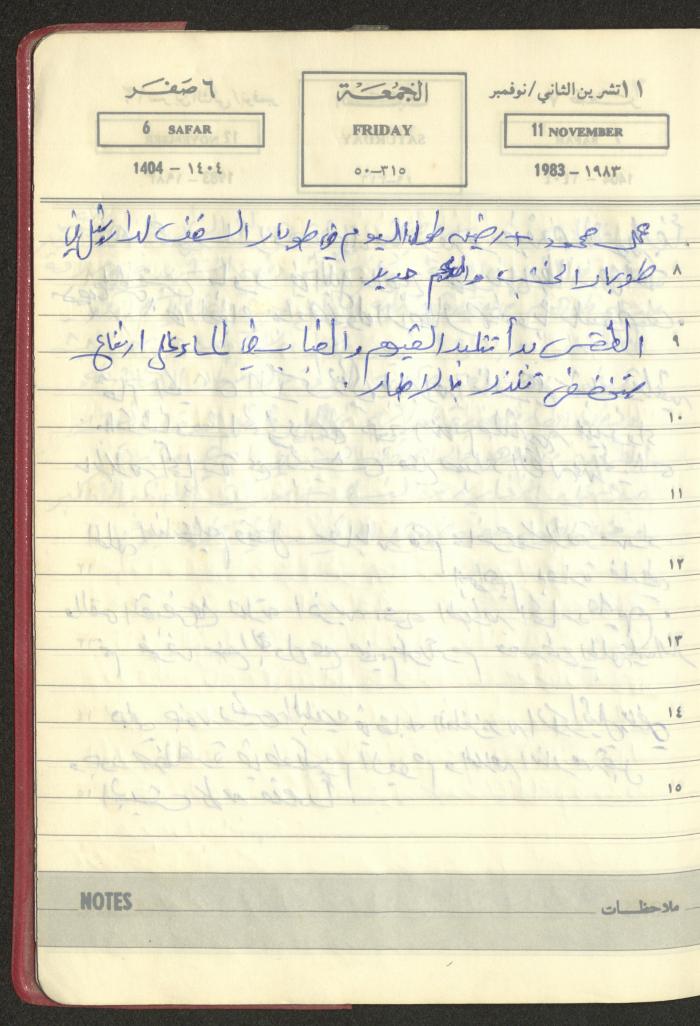 ١١ تشرين الثاني/نوفمبر
الجمعة
٦ صفر
11 NOVEMBER
FRIDAY
6 SAFAR
1983 – ١٩٨٣
٣١٥–٥٠
1404 – ١٤٠٤
محمود + رضي طوال اليوم في طوبار السقف لدار
٨
طوبار الخشب و حديد
٩
الطقس بدأ تتلبد الغيوم والضباب في المساء على ارتفاع
منخفض تنذر بالامطار.
١٠
١١
١٢
١٣
١٤
١٥
NOTES
ملاحظات